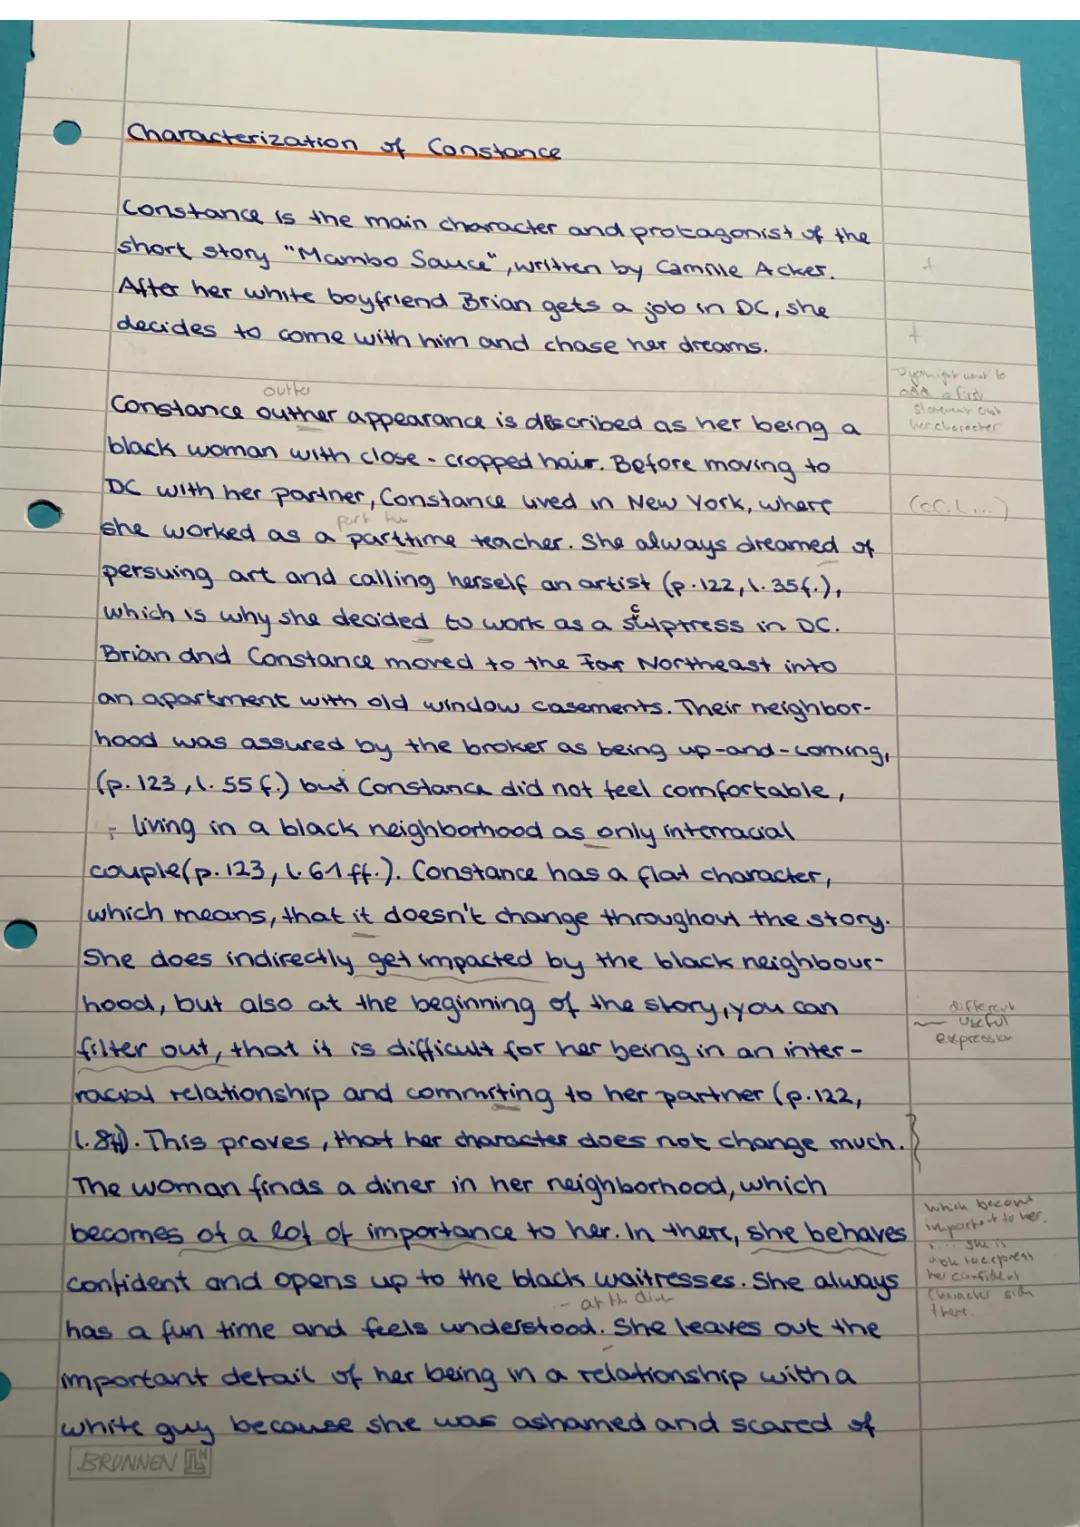 Characterization of Constance
Constance is the main character and protagonist of the
short story "Mambo Sauce", written by Camille Acker.
After her white boyfriend Brian gets a job in DC, she
decides to come with him and chase her dreams.
might want to
add a first
her character
outer
Constance outher appearance is described as her being a
black woman with close-cropped hair. Before moving to
DC with her partner, Constance lived in New York, where
(cf. l. ...)
part
she worked as a parttime teacher. She always dreamed of
persuing art and calling herself an artist (p. 122, l. 35f.),
c
which is why she decided to work as a sulptress in DC.
Brian and Constance moved to the Far Northeast into
an apartment with old window casements. Their neighbor-
hood was assured by the broker as being up-and-coming,
(p. 123, l. 55 f.) but Constance did not feel comfortable,
living in a black neighborhood as only interracial
couple (p. 123, l. 61 ff.). Constance has a flat character,
which means, that it doesn't change throughout the story.
She does indirectly get impacted by the black neighbour-
hood, but also at the beginning of the story, you can
different
useful
expression
filter out, that it is difficult for her being in an inter-
racial relationship and commiting to her partner (p. 122,
l. 8). This proves, that her character does not change much.
The woman finds a diner in her neighborhood, which
becomes of a lot of importance to her. In there, she behaves
which becomes
important to her.
... she is
able to express
her confident
character side
there.
confident and opens up to the black waitresses. She always
- at the diner
has a fun time and feels understood. She leaves out the
important detail of her being in a relationship with a
white guy because she was ashamed and scared of
BRUNNEN